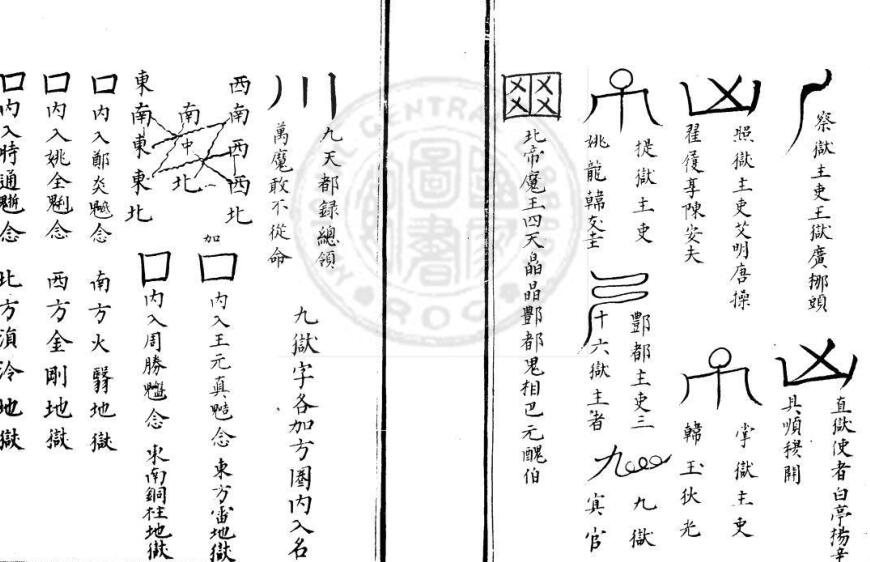 察獄主吏王獄廣挪頭
直獄使者白亭楊辛
照獄主吏艾明唐操
翟履享陳安夫
掌獄主吏
韓玉狄光
提獄主吏
姚龍韓交圭
酆都主吏三
十六獄主者
九獄
冥官
北帝魔王四天晶晶酆都鬼相巴元醜伯
九天都録總領
萬魔敢不從命
九獄字各加方圈内入名
西南西西北
南中北
東南東東北
加
口内入王元真魒念 東方雷地獄
口内入周勝魒念 東南銅柱地獄
口内入鄭炎魒念 南方火翳地獄
口内入姚全魒念 西方金剛地獄
口内入時通魒念 北方溟泠地獄
NATIONAL CENTRAL LIBRARY
ROC